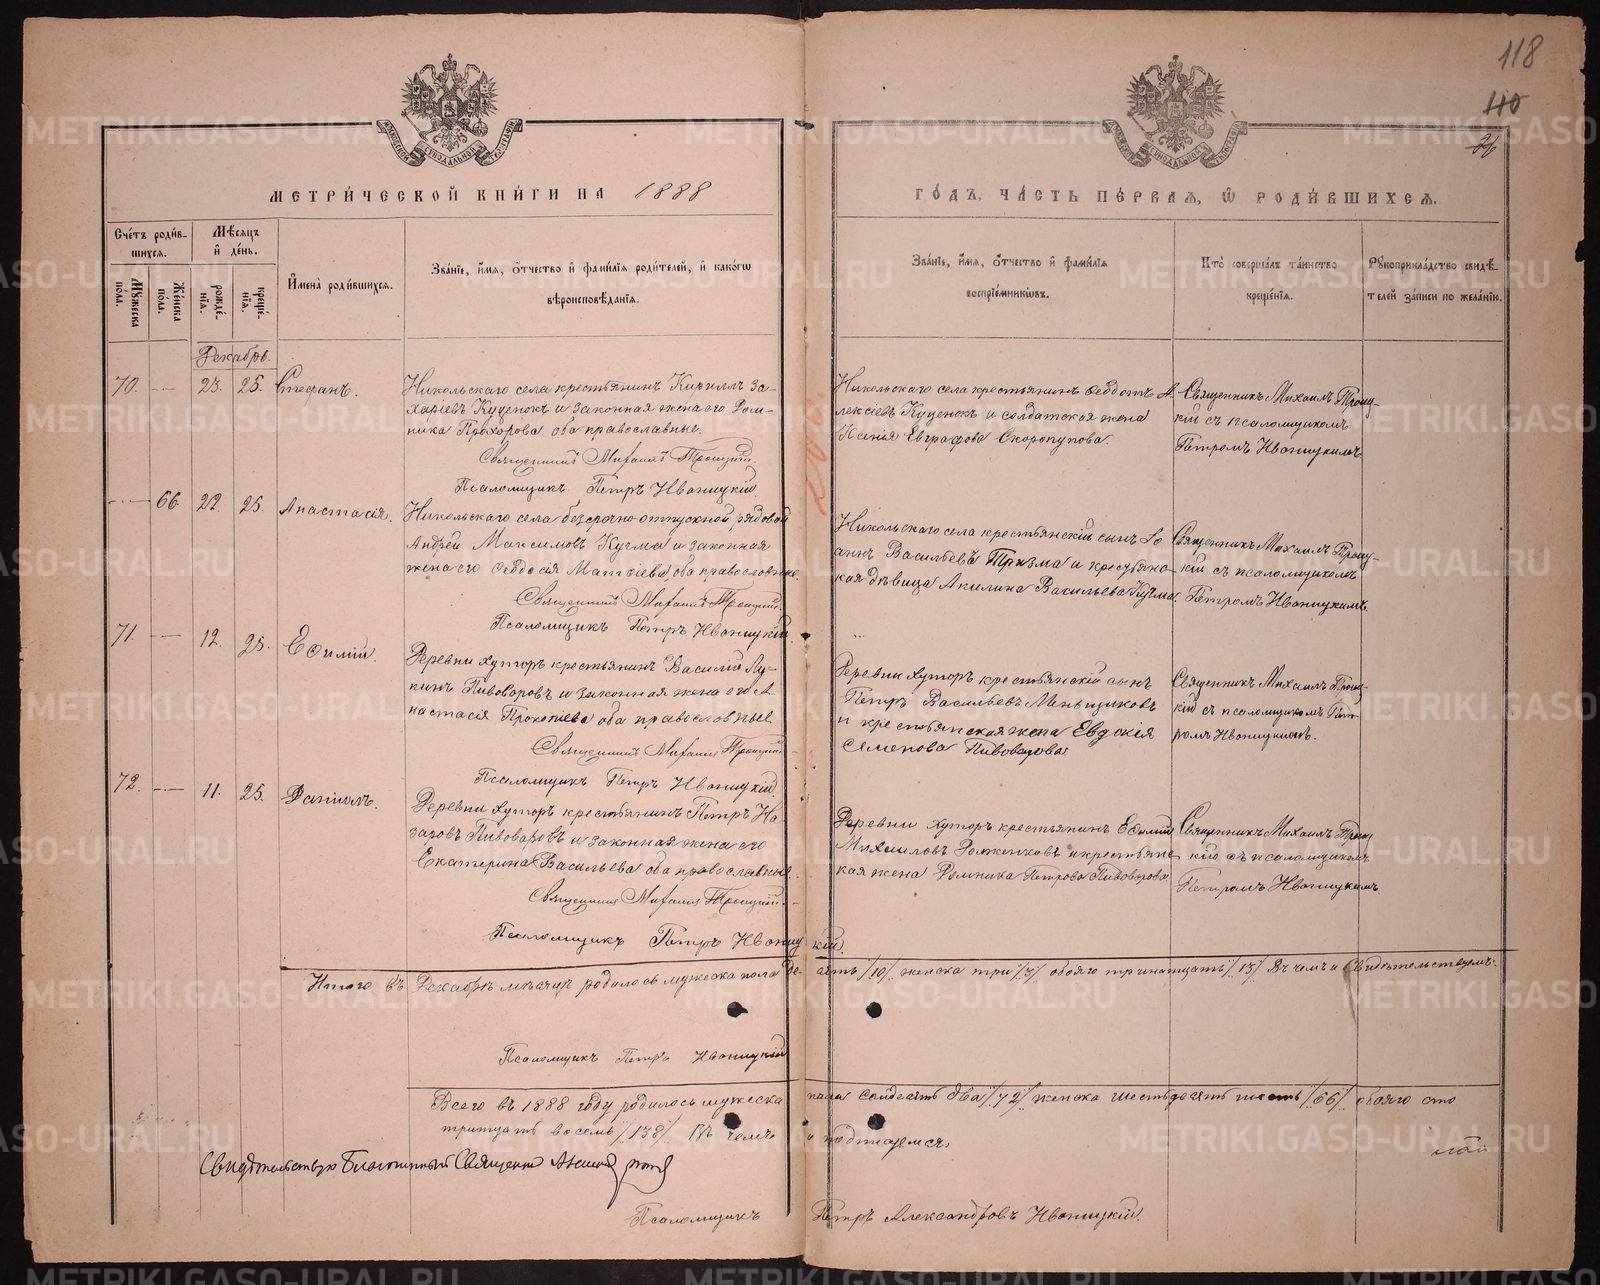 118
110
26
МЕТРИ́ЧЕСКОЙ КНИ́ГИ НА 1888
ГО́ДЪ, ЧА́СТЬ ПЕ́РВАѦ, Ѡ҆ РОДИ́ВШИХСѦ.
Сче́тъ роди́в-
шихсѧ.
Мѣ́сѧцъ
и҆ де́нь.
И҆мена̀ роди́вшихсѧ.
Зва́нїе, и҆́мѧ, ѻ҆́тчество и҆ фами́лїѧ роди́телей, и҆ како́гѡ
вѣроисповѣ́данїѧ.
Мꙋ́жеска
пола.
Же́нска
пола.
рожде́-
нїѧ.
креще́-
нїѧ.
Зва́нїе, и҆́мѧ, ѻ҆́тчество и҆ фами́лїѧ
воспрїе́мникѡвъ.
Кто̀ соверша́лъ та́инство
креще́нїѧ.
Рꙋкоприкла́дство свидѣ́-
телей за́писи по жела́нїю.
Декабрь.
70. 23. 25. Стефанъ.
Никольскаго села крестьянинъ Кириллъ За-
харіевъ Куценокъ и законная жена его Дом-
ника Прохорова оба православные.
Священникъ Михаилъ Троицкій.
Псаломщикъ Петръ Ивоницкій
Никольскаго села крестьянинъ Феодотъ А-
лексіевъ Куценокъ и солдатская жена
Ксенія Евграфова Скоропупова.
Священникъ Михаилъ Троиц-
кій съ псаломщикомъ
Петромъ Ивоницкимъ.
66. 22. 25. Анастасія.
Никольскаго села безсрочно-отпускной рядовой
Андрей Максимовъ Кучма и законная
жена его Феодосія Матфіева оба православные.
Священникъ Михаилъ Троицкій.
Псаломщикъ Петръ Ивоницкій.
Никольскаго села крестьянскій сынъ Іо
аннъ Васильевъ Призма и крестьянс-
кая дѣвица Акилина Васильева Кучма.
Священникъ Михаилъ Троиц-
кій съ псаломщикомъ
Петромъ Ивоницкимъ.
71. 12. 25. Ефимій.
Деревни Хуторъ крестьянинъ Василій Лу-
кинъ Пивоваровъ и законная жена его А-
настасія Прокопіева оба православные
Священникъ Михаилъ Троицкій.
Псаломщикъ Петръ Ивоницкій.
Деревни Хуторъ крестьянскій сынъ
Петръ Васильевъ Меньщиковъ
и крестьянская жена Евдокія
Семенова Пивоварова
Священникъ Михаилъ Троиц-
кій съ псаломщикомъ Пет-
ромъ Ивоницкимъ.
72. 11. 25. Даніилъ.
Деревни Хуторъ крестьянинъ Петръ На-
заровъ Пивоваровъ и законная жена его
Екатерина Васильева оба православные.
Священникъ Михаилъ Троицкій.
Псаломщикъ Петръ Ивоницкій.
Деревни Хуторъ крестьянинъ Ефимій
Михаиловъ Долженковъ и крестьянс-
кая жена Домника Петрова Пивоварова
Священникъ Михаилъ Троиц
кій съ псаломщикомъ
Петромъ Ивоницкимъ.
Итого въ Декабрѣ мѣсяцѣ родилось мужеска пола де-сять /10/. женска три /3/ обоего тринатцать /13/ Въ чемъ и свидѣтельствуемъ:
Псаломщикъ Петръ Ивоницкій
Всего въ 1888 году родилось мужеска пола семдесять два /72/ женска шестьдесятъ шесть /66/ обоего сто
тритцать восемь /138/. Въ чемъ и подписуемся,
Свидѣтельствую Благочинный Священникъ
Псаломщикъ Петръ Александровъ Ивоницкій.
METRIKI.GASO-URAL.RU